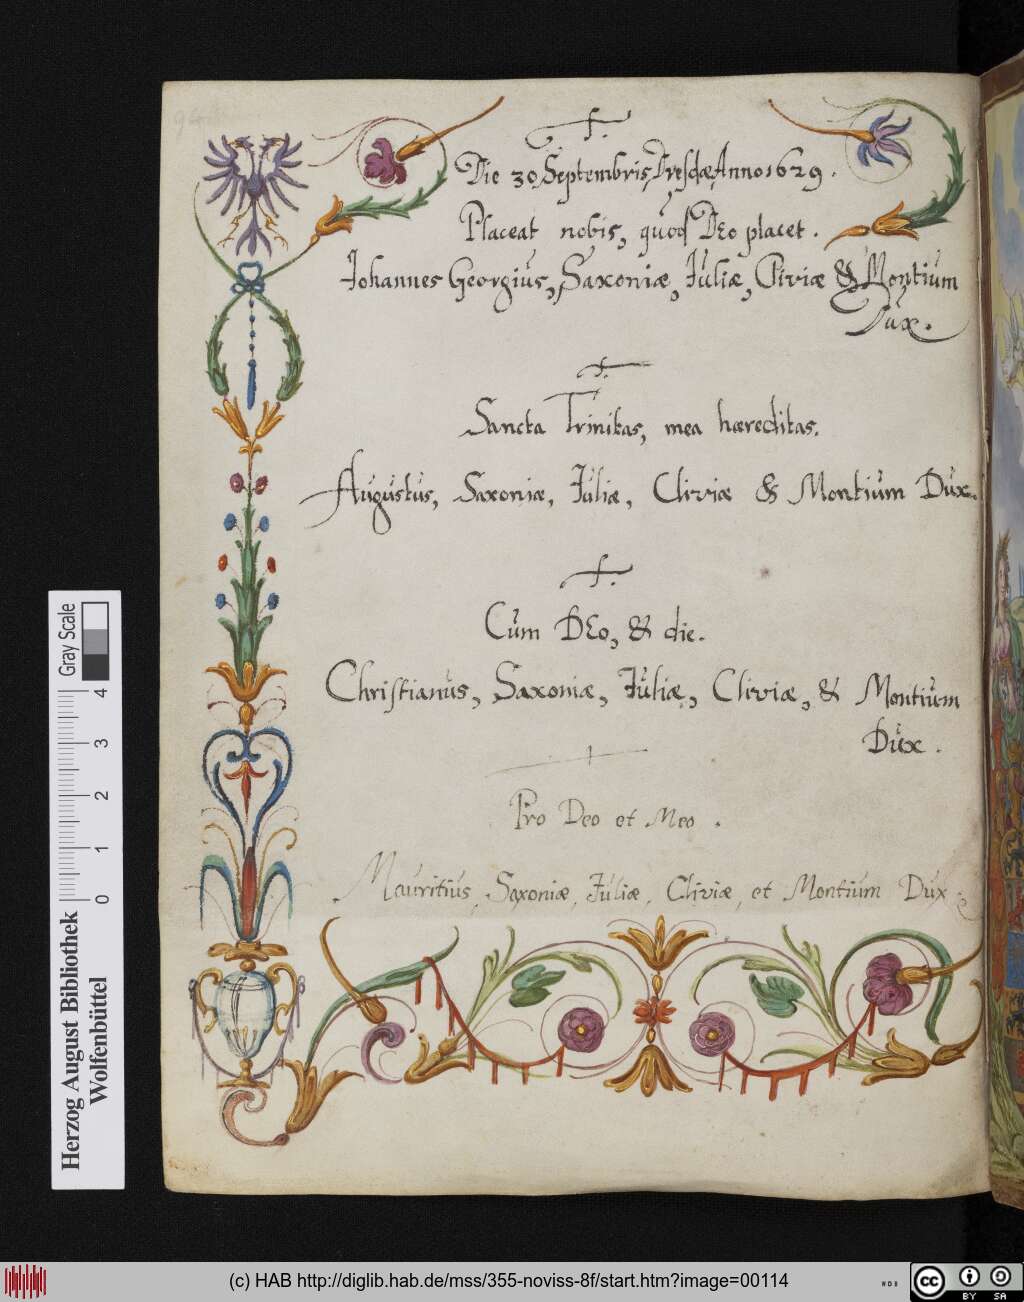 †.
Die 30 Septembris, Dresdæ, Anno 1629.
Placeat nobis, quod DEo placet.
Johannes Georgius, Saxoniæ, Juliæ, Cliviæ & Montium
Dux.
†.
Sancta Trinitas, mea hæreditas.
Augustus, Saxoniæ, Juliæ, Cliviæ & Montium Dux.
†.
Cum DEo, & die.
Christianus, Saxoniæ, Juliæ, Cliviæ, & Montium
Dux.
†
Pro Deo et Meo.
Mauritius, Saxoniæ, Juliæ, Cliviæ, et Montium Dux.
Gray Scale
0 1 2 3 4
Herzog August Bibliothek
Wolfenbüttel
(c) HAB http://diglib.hab.de/mss/355-noviss-8f/start.htm?image=00114
WDB
cc BY SA